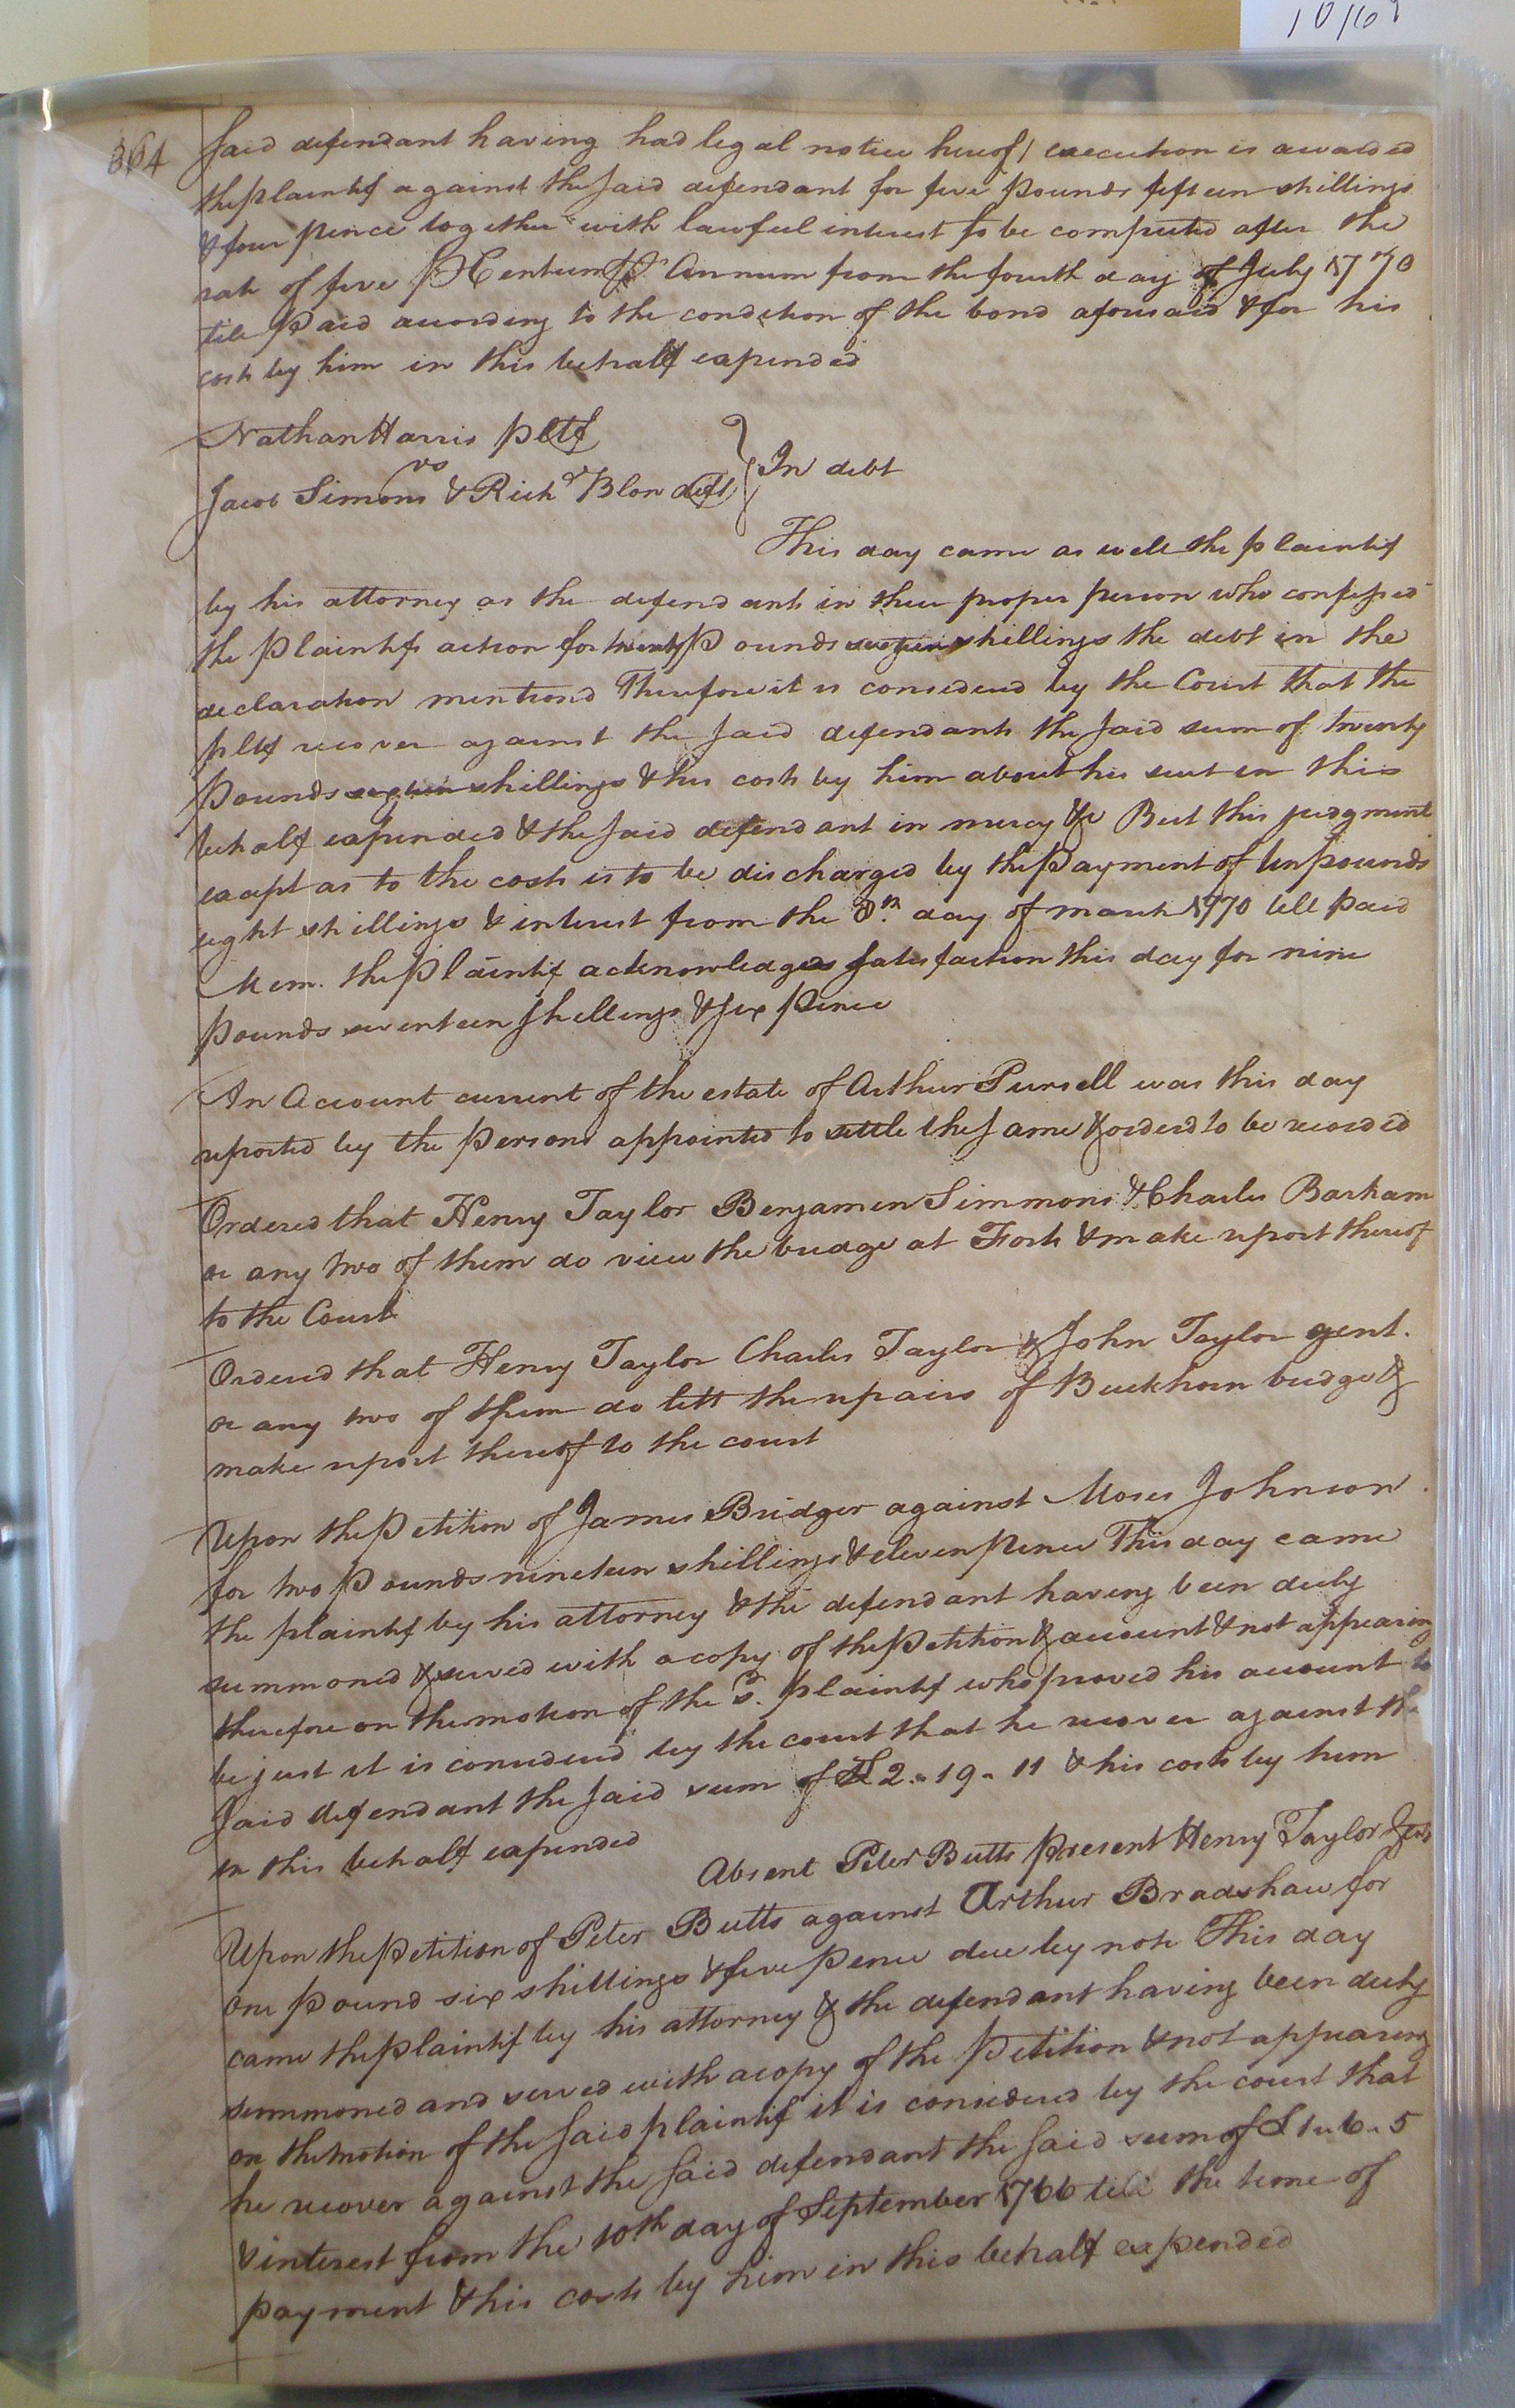 10/69
364
Said defendant having had legal notice hereof / execution is awarded
the plaintif against the said defendant for five pounds fifteen shillings
& four pence together with lawful interest to be computed after the
rate of five P Centum P Annum from the fourth day of July 1770
till paid according to the condition of the bond aforesaid & for his
costs by him in this behalf expended
Nathan Harris pltf
vs
Jacob Simons & Richd Blow defts
In debt
This day came as well the plaintif
by his attorney as the defendants in their proper person who confessed
the plaintifs action for twenty pounds sixteen shillings the debt in the
declaration mentiond Therefore it is considered by the Court that the
pltf recover against the said defendants the said sum of twenty
pounds sixteen shillings & his costs by him about his suit in this
behalf expended & the said defendant in mercy &c But this judgment
except as to the costs is to be discharged by the payment of ten pounds
eight shillings & interest from the 8th day of march 1770 till paid
Mem. the plaintif acknowledges satisfaction this day for nine
pounds seventeen shillings & six pence
An Account current of the estate of Arthur Pursell was this day
reported by the persons appointed to settle the same & orderd to be recorded
Ordered that Henry Taylor Benjamen Simmons & Charles Barham
or any two of them do view the bridge at Forts & make report thereof
to the Court
Ordered that Henry Taylor Charles Taylor & John Taylor gent.
or any two of them do lett the repairs of Buckhorn bridge &
make report thereof to the court
Upon the petition of James Bridger against Moses Johnson
for two pounds nineteen shillings & eleven pence This day came
the plaintif by his attorney & the defendant having been duly
summoned & served with a copy of the petition & account & not appearing
therefore on the motion of the sd. plaintif who proved his account to
be just it is considered by the court that he recover against the
said defendant the said sum of £2. 19. 11 & his costs by him
in this behalf expended
Absent Peter Butts present Henry Taylor Gent
Upon the petition of Peter Butts against Arthur Bradshaw for
one pound six shillings & five pence due by note This day
came the plaintif by his attorney & the defendant having been duly
summoned and served with a copy of the petition & not appearing
on the motion of the said plaintif it is considered by the court that
he recover against the said defendant the said sum of £1. 6. 5
& interest from the 10th day of September 1766 till the time of
payment & his costs by him in this behalf expended